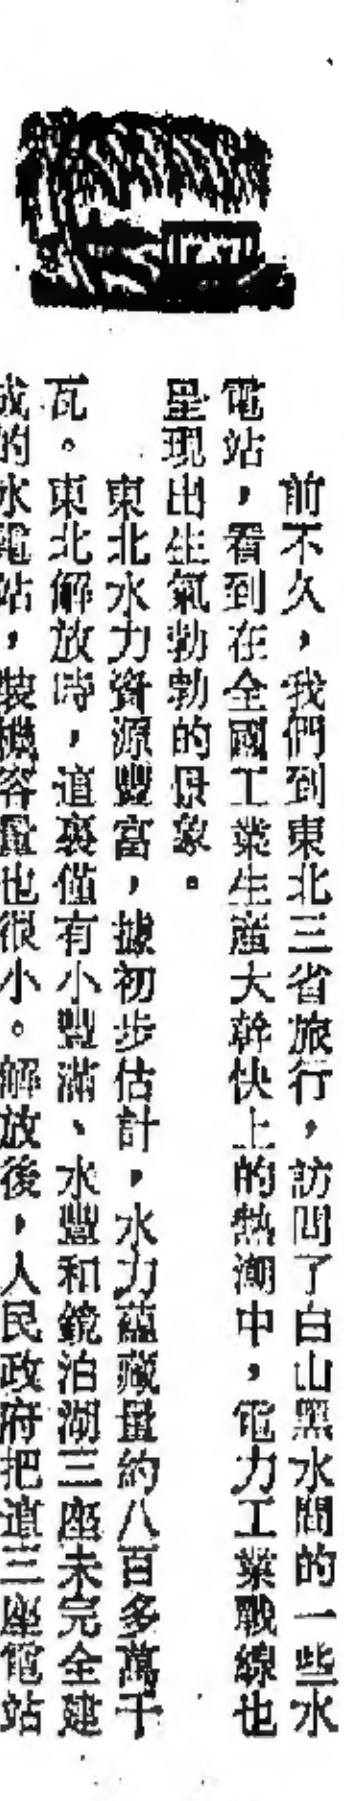 前不久，我們到東北三省旅行，訪問了白山黑水間的一些水
電站，看到在全國工業生産大幹快上的熱潮中，電力工業戰線也
呈現出生氣勃勃的景象。
東北水力資源豐富，據初步估計，水力蘊藏量約八百多萬千
瓦。東北解放時，這裏僅有小豐滿、水豐和鏡泊湖三座未完全建
成的水電站，裝機容量也很小。解放後，人民政府把這三座電站